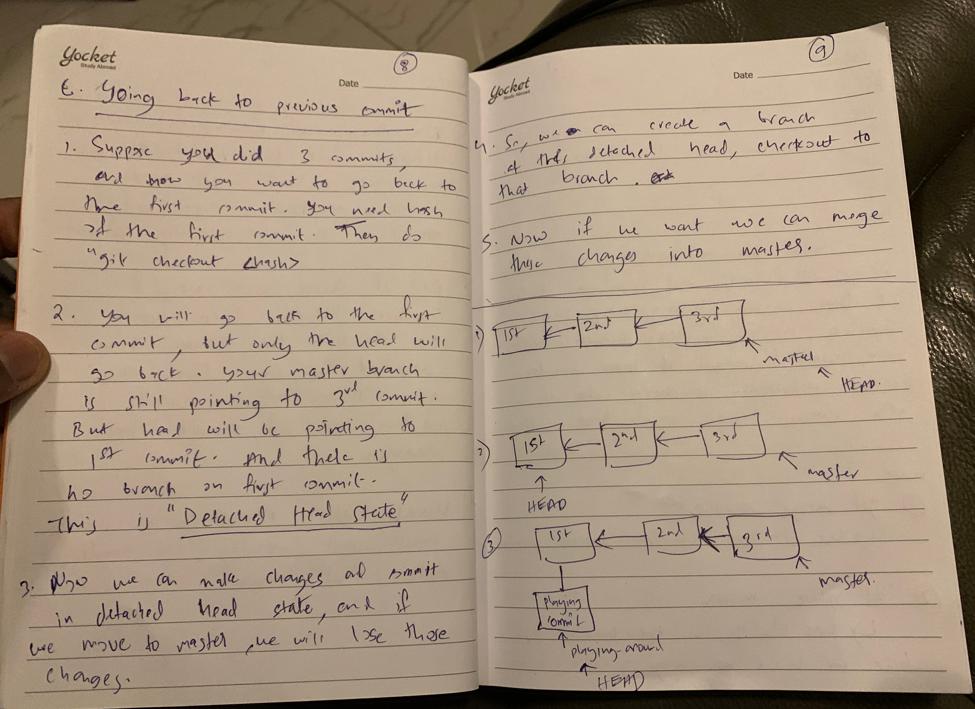 Yocket
Study Abroad
8
Date
E. Going back to previous commit
1. Suppose you did 3 commits,
and now you want to go back to
the first commit. You need hash
of the first commit. Then do
"git checkout <hash>
2. You will go back to the first
commit, but only the head will
go back. Your master branch
is still pointing to 3rd commit.
But head will be pointing to
1st commit. And there is
no branch on first commit.
This is "Detached Head State"
3. Now we can make changes ad commit
in detached head state, and if
we move to master, we will lose those
changes.
Yocket
Study Abroad
9
Date
4. So, we can create a branch
at this detached head, checkout to
that branch.
5. Now if we want we can merge
these changes into master.
1) 1st 2nd 3rd
master
HEAD.
2) 1st 2nd 3rd
master
HEAD
3 1st 2nd 3rd
master.
playing
commit
playing-around
HEAD